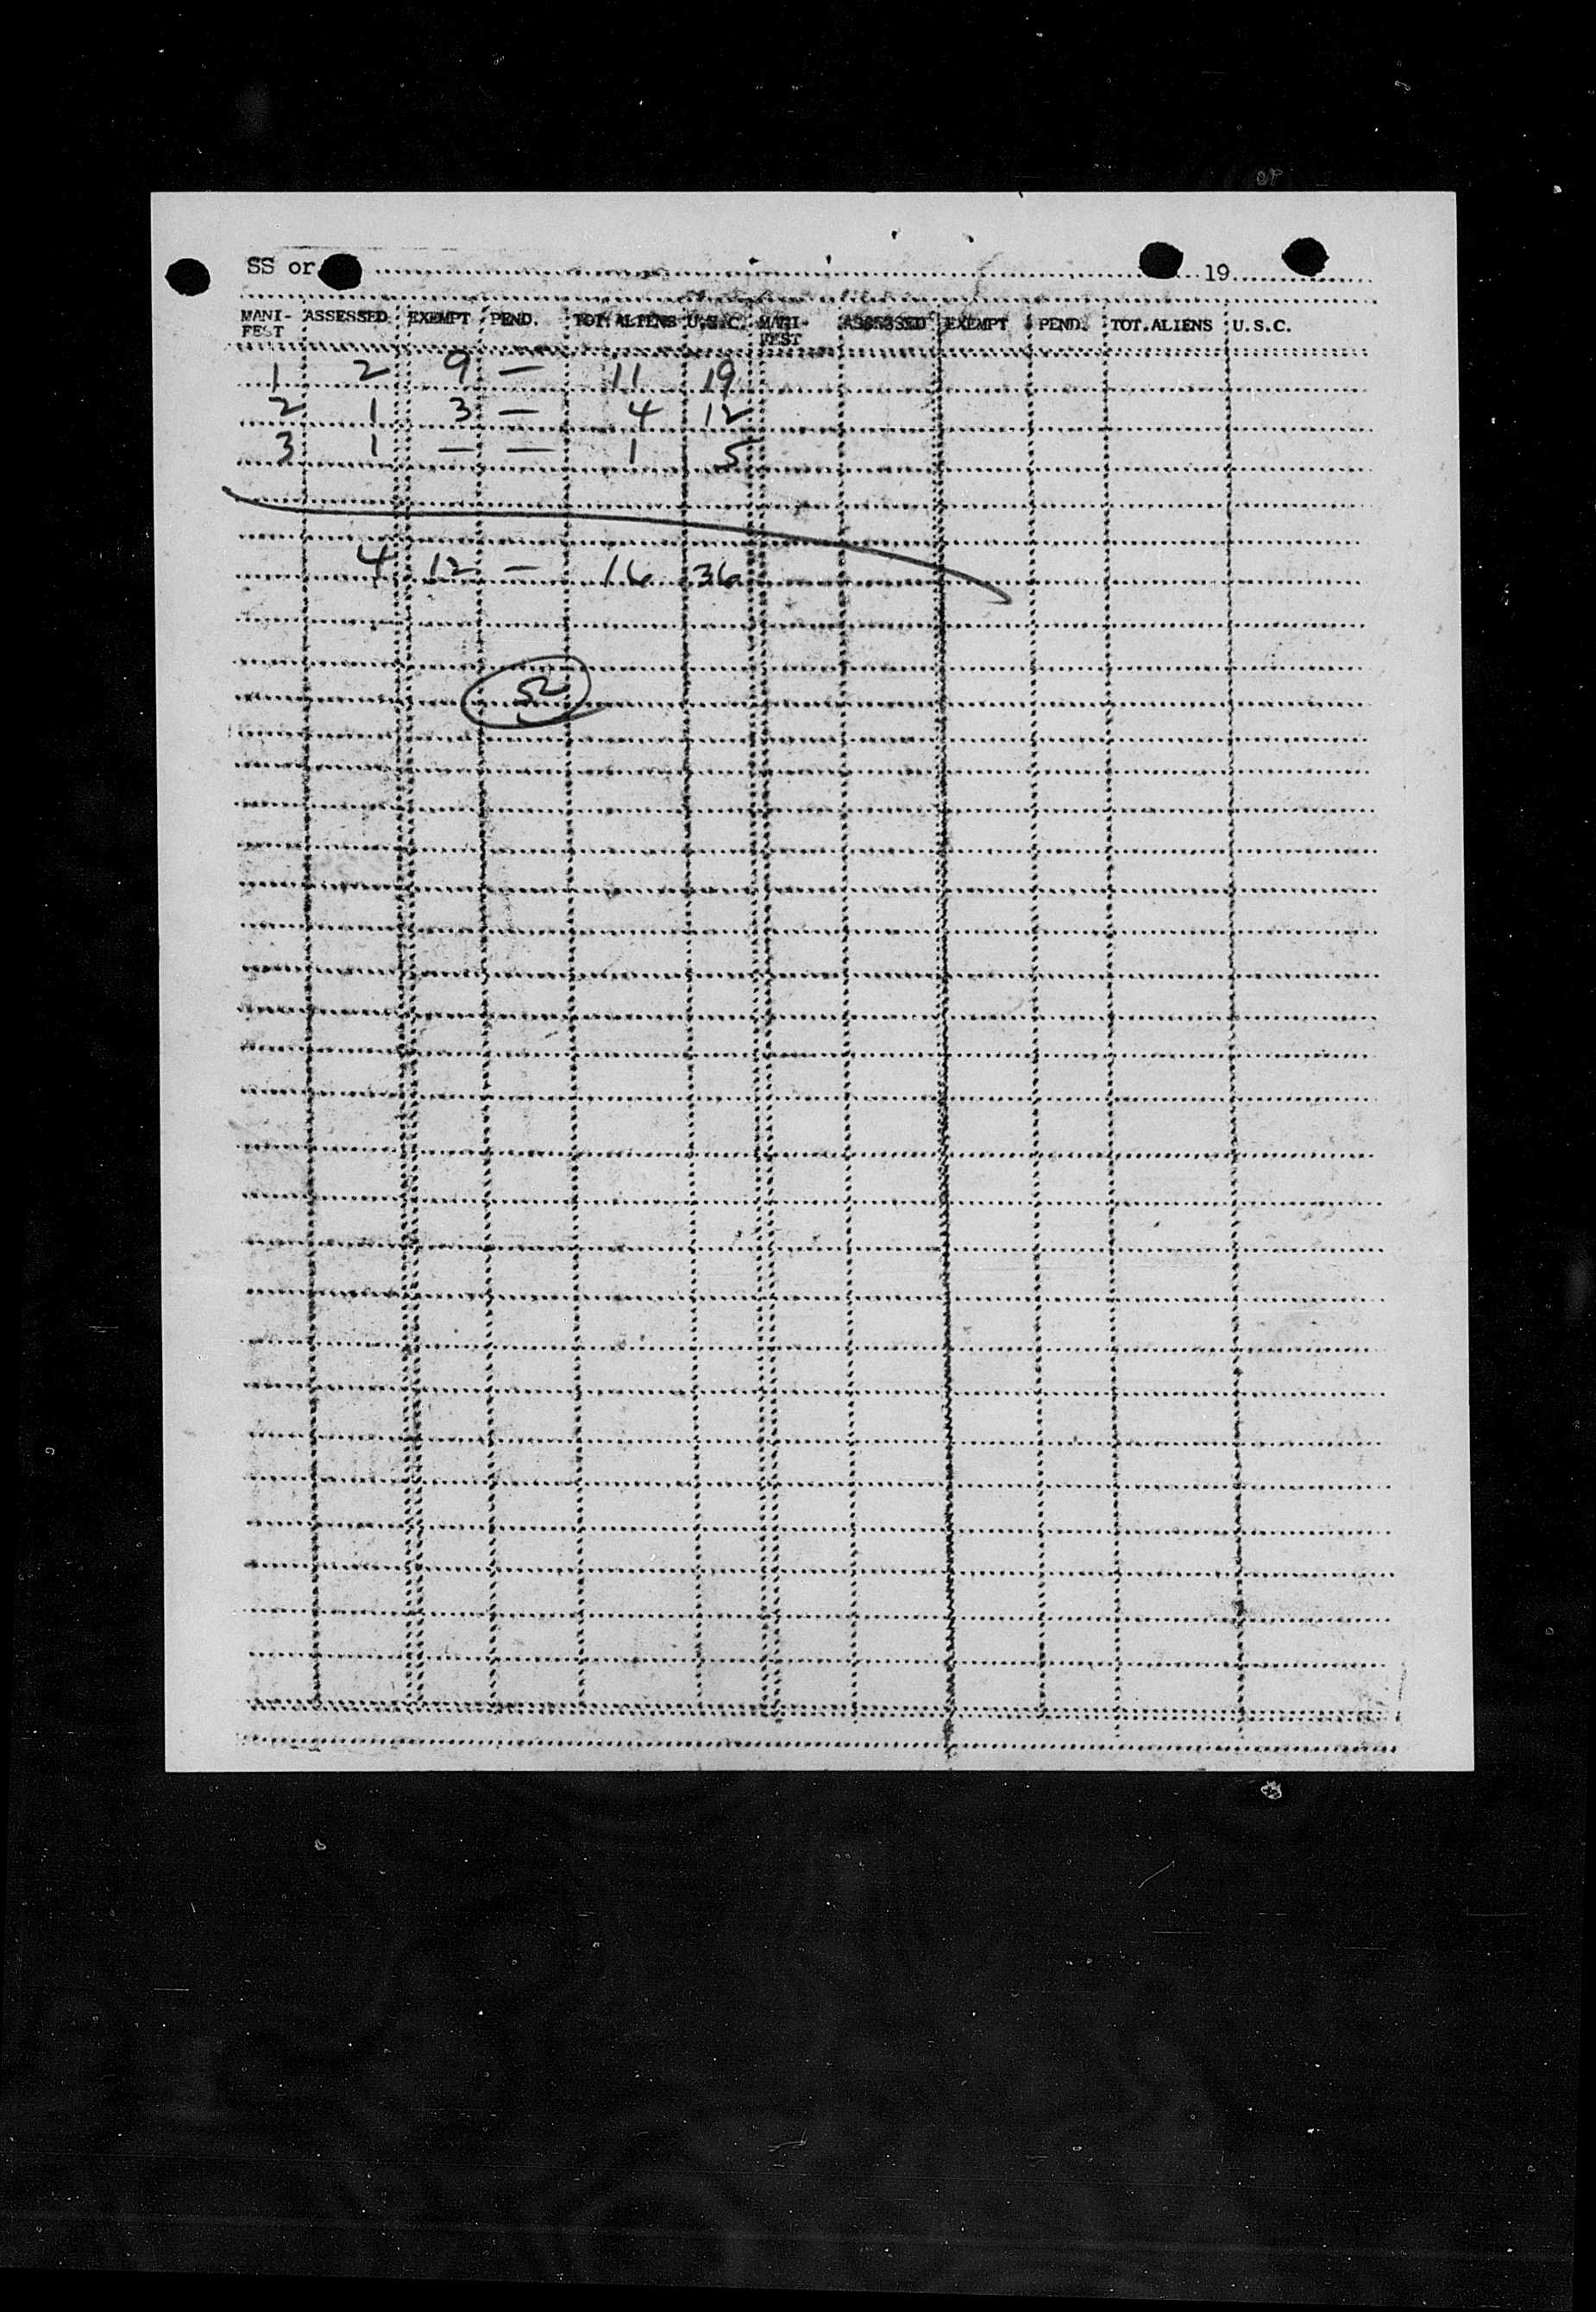 SS or 19
MANI- ASSESSED EXEMPT PEND. TOT. ALIENS U.S.C. MANI- ASSESSED EXEMPT PEND. TOT.ALIENS U.S.C.
FEST FEST
1 2 9 — 11 19
2 1 3 — 4 12
3 1 — — 1 5
4 12 — 16 36
52